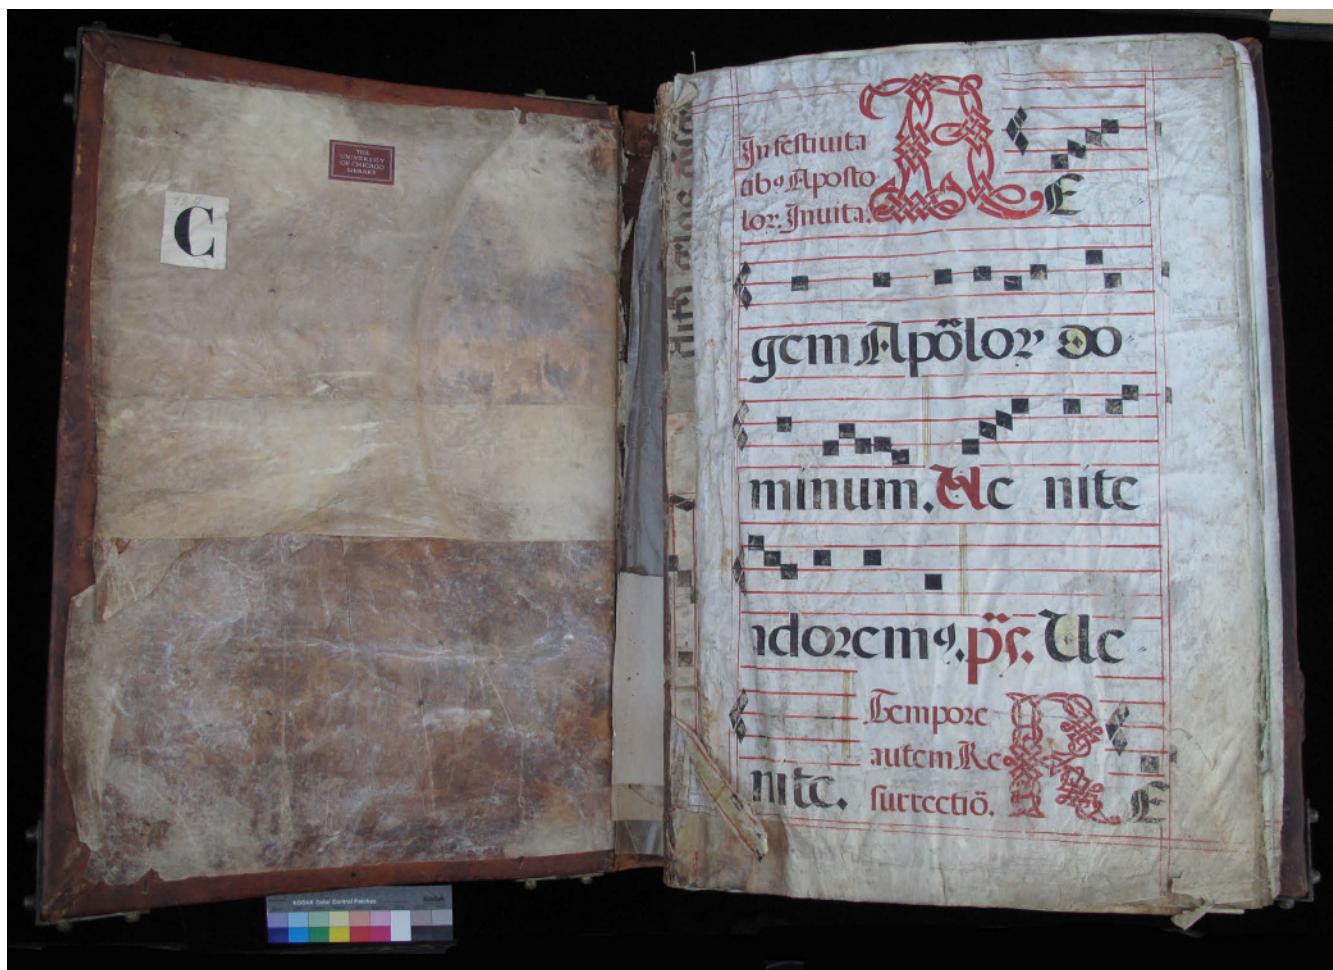 THE
UNIVERSITY
OF CHICAGO
LIBRARY
C
In festiuita
tibꝰ Aposto
lor. Inuita.
RE
gem Apõlorꝝ do
minum. Ve nite
adoremꝰ. p̃s. Ve
nite.
Tempore
autem Re
surrectiõ.
RE
KODAK Color Control Patches
Kodak